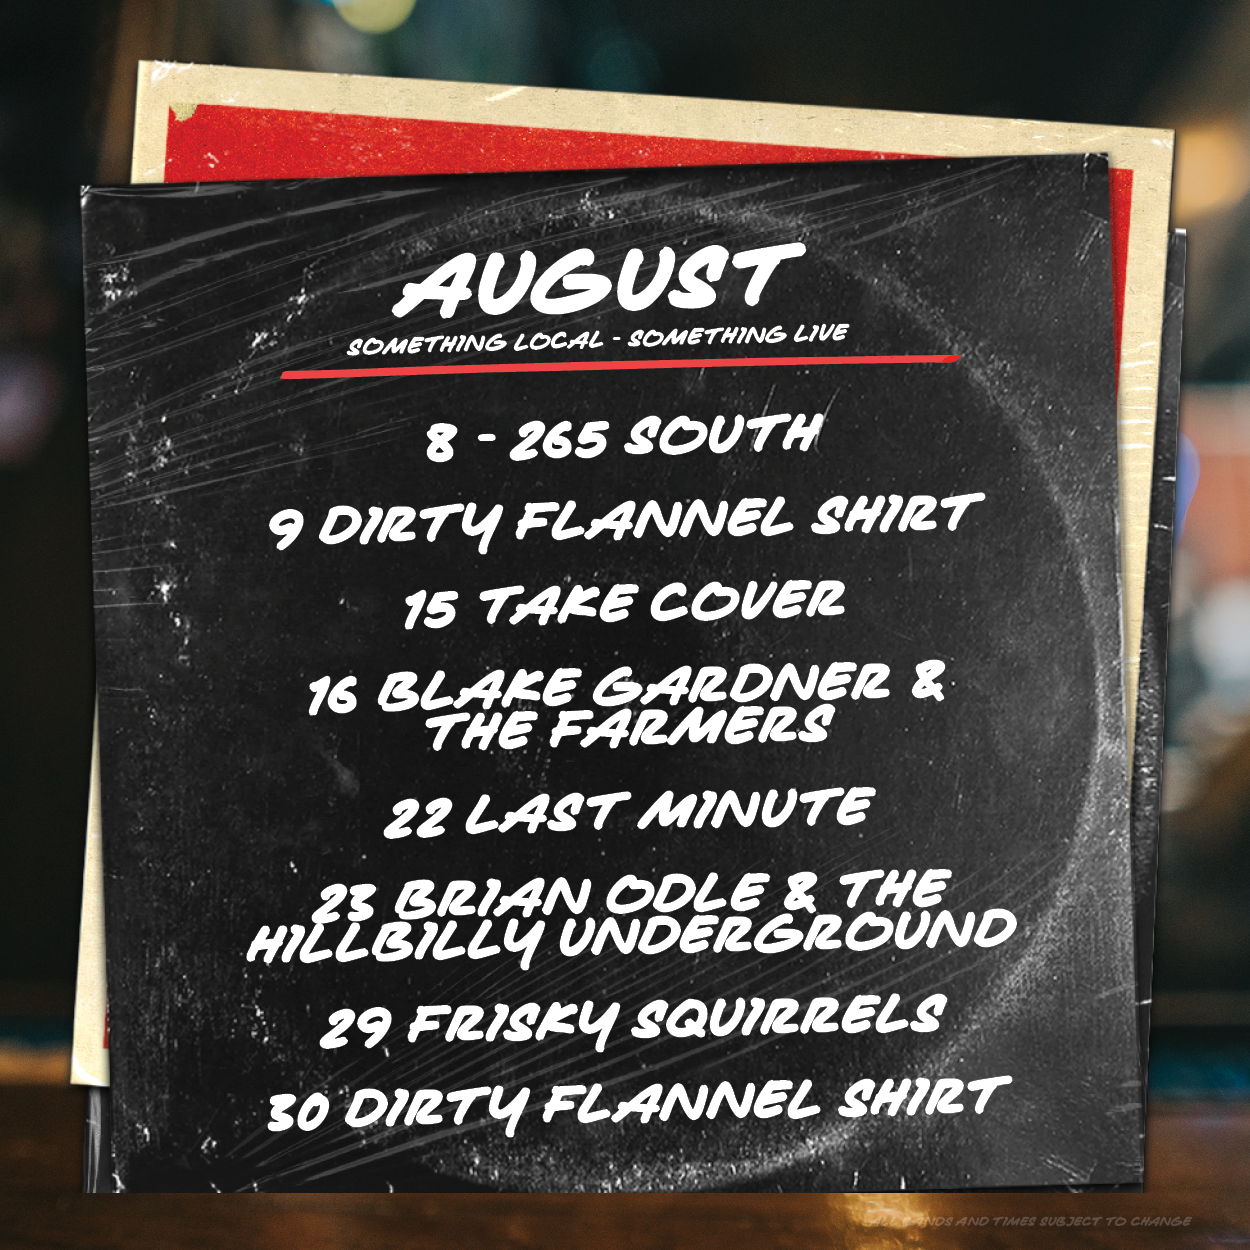 AUGUST
SOMETHING LOCAL - SOMETHING LIVE
8 - 265 SOUTH
9 DIRTY FLANNEL SHIRT
15 TAKE COVER
16 BLAKE GARDNER &
THE FARMERS
22 LAST MINUTE
23 BRIAN ODLE & THE
HILLBILLY UNDERGROUND
29 FRISKY SQUIRRELS
30 DIRTY FLANNEL SHIRT
ALL BANDS AND TIMES SUBJECT TO CHANGE